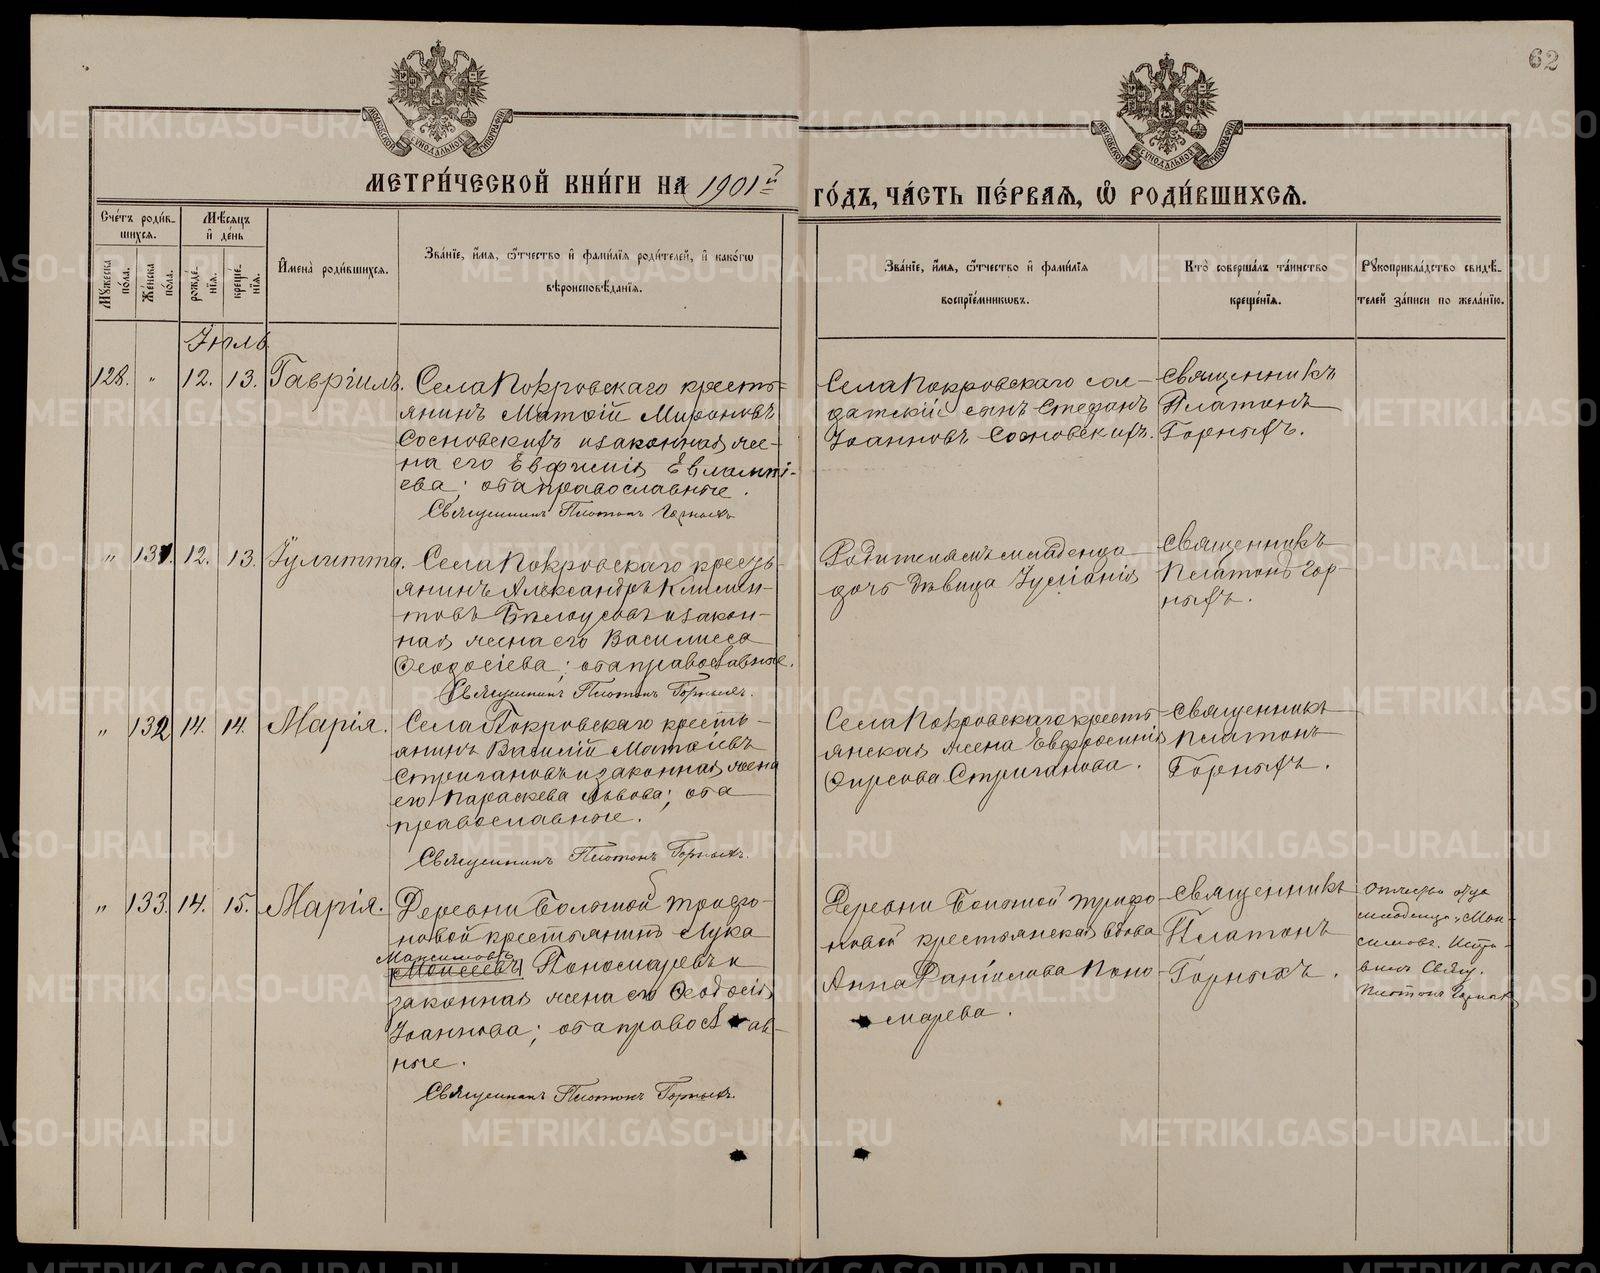 62
МОСКОВСКОЙ СУНОДАЛЬНОЙ ТИПОГРАФІИ
МОСКОВСКОЙ СУНОДАЛЬНОЙ ТИПОГРАФІИ
МЕТРИ́ЧЕСКОЙ КНИ́ГИ НА 1901й
ГО́ДЪ, ЧА́СТЬ ПЕ́РВАЯ, Ѽ РОДИ́ВШИХСЯ.
Сче́тъ роди́в-
шихся.
Мѣ́сяцъ
и҆ де́нь
Мꙋ́жеска
по́ла.
Же́нска
по́ла.
рожде́-
нїя.
креще́-
нїя.
И҆мена̀ роди́вшихся.
Зва́нїе, и҆́мя, ѻ҆́тчество и҆ фамѝлїя роди́телей, и҆ како́гѡ
вѣроисповѣ́данїя.
Зва́нїе, и҆́мя, ѻ҆́тчество и҆ фами́лїя
воспрїе́мникѡвъ.
Кто̀ соверша́лъ та́инство
креще́нїя.
Рꙋкоприкла́дство свидѣ́-
телей за́писи по жела́нїю.
Іюль
128. " 12. 13. Гавріилъ. Села Покровскаго кресть-
янинъ Матѳій Мироновъ
Сосновскихъ и законная же-
на его Евфимія Евлампі-
ева; оба православные.
Священникъ Платонъ Горныхъ
Села Покровскаго сол-
датскій сынъ Стефанъ
Іоанновъ Сосновскихъ.
Священникъ
Платонъ
Горныхъ.
" 131. 12. 13. Іулитта. Села Покровскаго кресть-
янинъ Александръ Климен-
товъ Бѣлоусовъ и закон-
ная жена его Василисса
Ѳеодосіева; оба православные.
Священникъ Платонъ Горныхъ.
Родителямъ младенца
дочь дѣвица Іуліанія
Священникъ
Платонъ Гор-
ныхъ.
" 132 14. 14. Марія. Села Покровскаго кресть-
янинъ Василій Матѳіевъ
Стригановъ и законная жена
его Параскева Львова; оба
православные.
Священникъ Платонъ Горныхъ.
Села Покровскаго кресть-
янская жена Евфросинія
Ѳирсова Стриганова.
Священникъ
Платонъ
Горныхъ.
" 133. 14. 15. Марія. Деревни Большой Трифо-
новой крестьянинъ Лука
Максимовъ
Моисеевъ Пономаревъ и
законная жена его Ѳеодосія
Іоаннова; оба православ-
ные.
Священникъ Платонъ Горныхъ.
Деревни Большой Трифо-
новой крестьянская вдова
Анна Поно-
марева.
Священникъ
Платонъ
Горныхъ.
отца
младенца "Мак-
симовъ".
Свящ.
Платонъ Горныхъ
METRIKI.GASO-URAL.RU